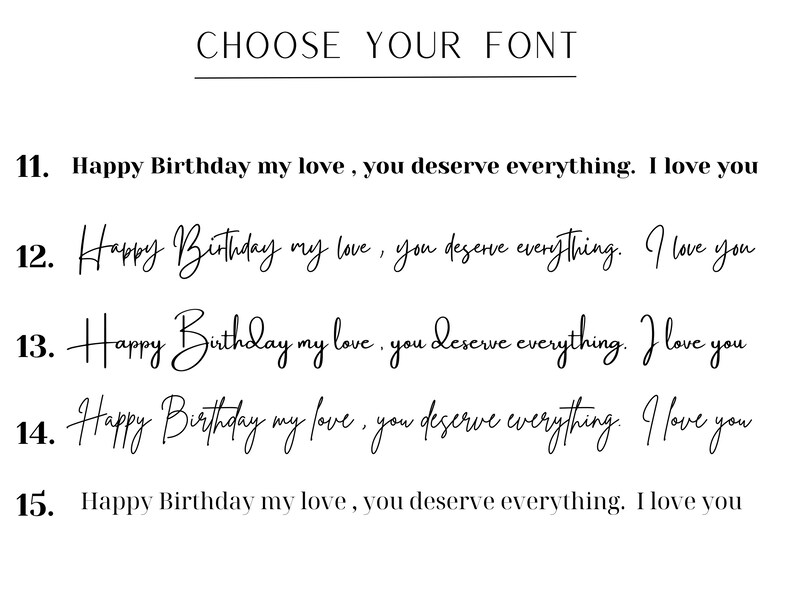 CHOOSE YOUR FONT
11. Happy Birthday my love , you deserve everything. I love you
12. Happy Birthday my love , you deserve everything. I love you
13. Happy Birthday my love , you deserve everything. I love you
14. Happy Birthday my love , you deserve everything. I love you
15. Happy Birthday my love , you deserve everything. I love you